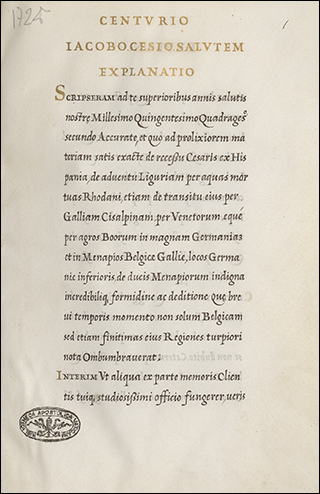 1725
1
CENTVRIO
IACOBO.CESIO.SALVTEM
EXPLANATIO
SCRIPSERAM ad te superioribus annis salutis
nostrę Millesimo Quingentesimo Quadrages̊
secundo Accurate, et quo ad prolixiorem ma
teriam satis exacte de recessu Cesaris ex His
pania, de adventu Liguriam per aquas mor
tuas Rhodani, etiam de transitu eius per
Galliam Cisalpinam, per Venetorum ęque
per agros Boorum in magnam Germaniaz
et in Menapios Belgice Gallię, locos Germa
nię inferioris, de ducis Menapiorum indigna
incredibiliq; formidine ac deditione que bre
ui temporis momento non solum Belgicam
sed etiam finitimas eius Regiones turpiori
nota Ombumbraverat:
INTERIM Vt aliqua ex parte memoris Clien
tis tuiq; studiosissimi officio fungerer, ueris